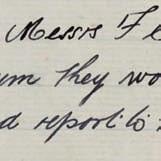 Messrs Fe
um they wo
d report to